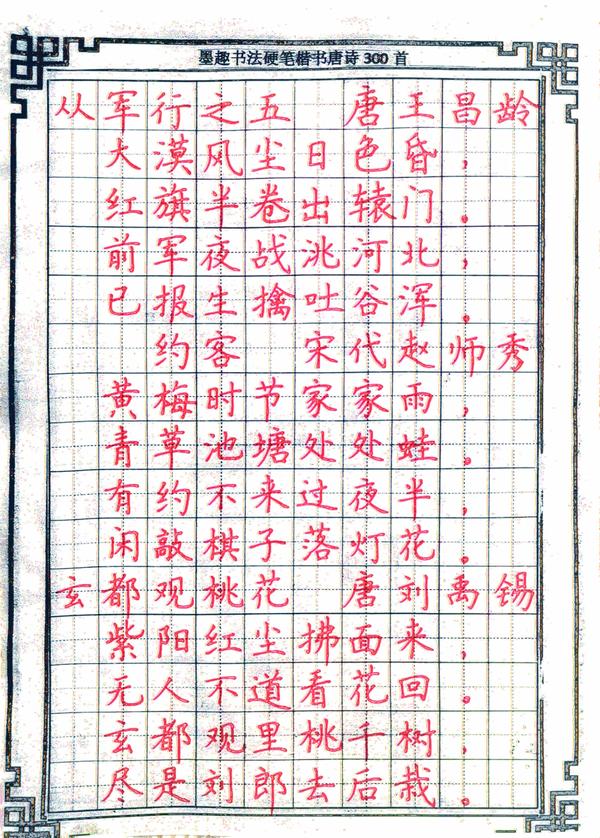 墨趣书法硬笔楷书唐诗300首
从军行之五 唐王昌龄
大漠风尘日色昏，
红旗半卷出辕门。
前军夜战洮河北，
已报生擒吐谷浑。
约客 宋代赵师秀
黄梅时节家家雨，
青草池塘处处蛙。
有约不来过夜半，
闲敲棋子落灯花。
玄都观桃花 唐刘禹锡
紫阳红尘拂面来，
无人不道看花回。
玄都观里桃千树，
尽是刘郎去后栽。